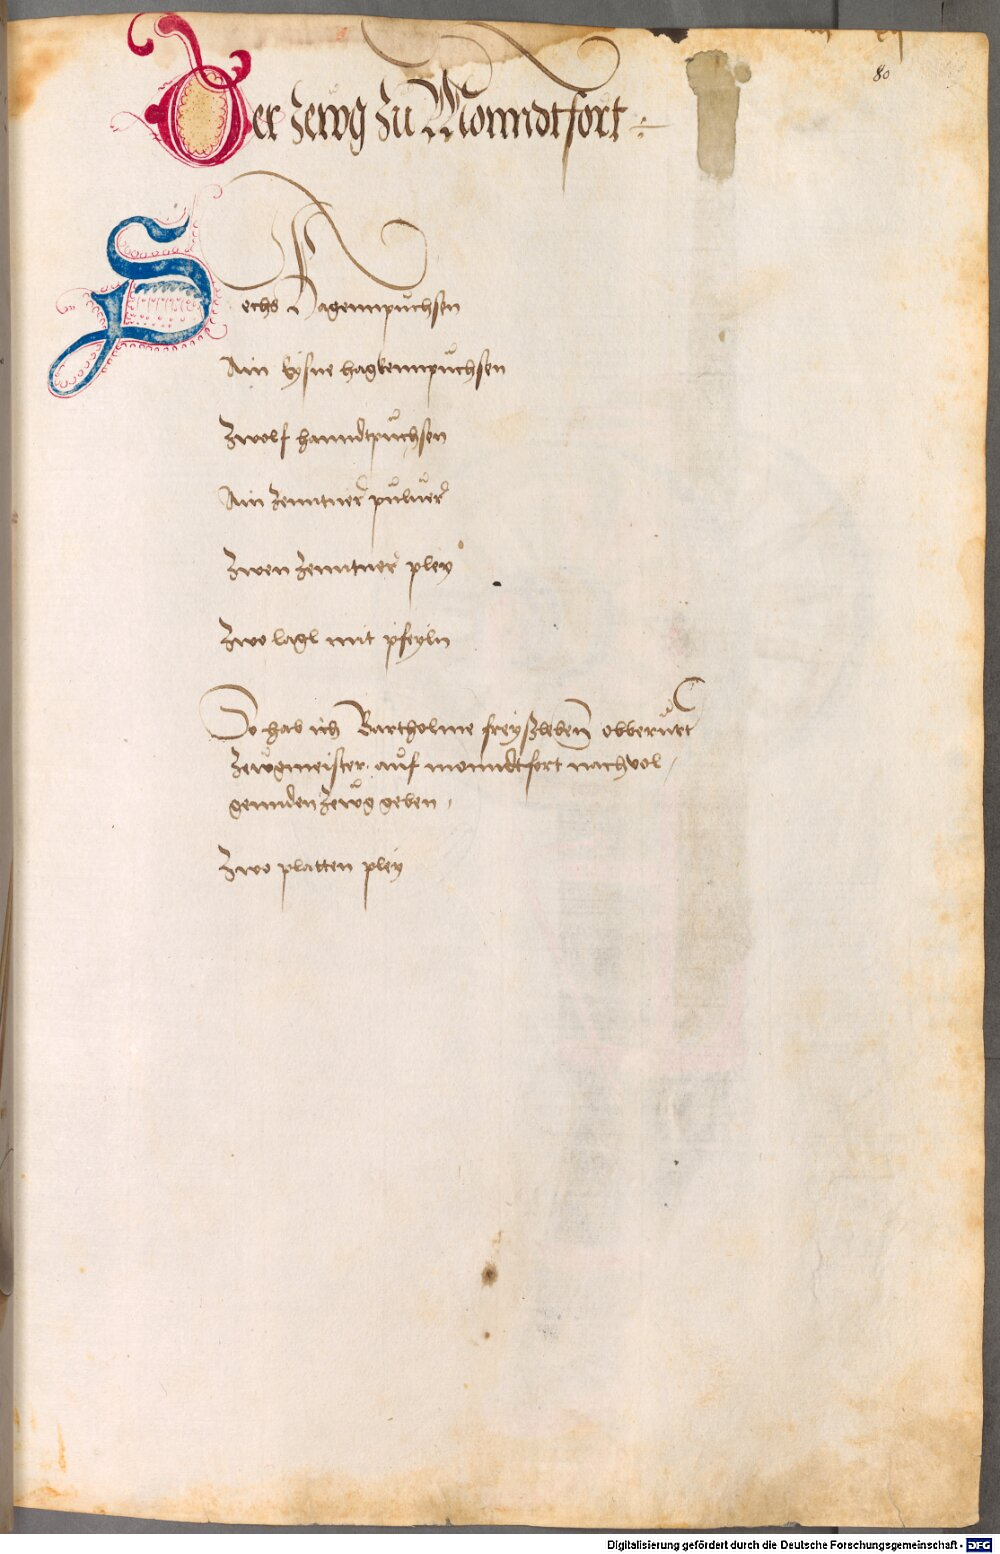 80
Der Zewg zu Monndtfort
Sechs Hagennpuchsen
Ain Eysne hagkennpuchsen
Zwolf hanndtpuchsen
Ain Zenntner puluer
Zwen Zenntner pley
Zwo lagl mit pfeyln
So hab ich Bartholme freyßleben obberurt
Zewgmeister auf monndtfort nachuol
gennden Zewg geben
Zwo platten pley
Digitalisierung gefördert durch die Deutsche Forschungsgemeinschaft - DFG